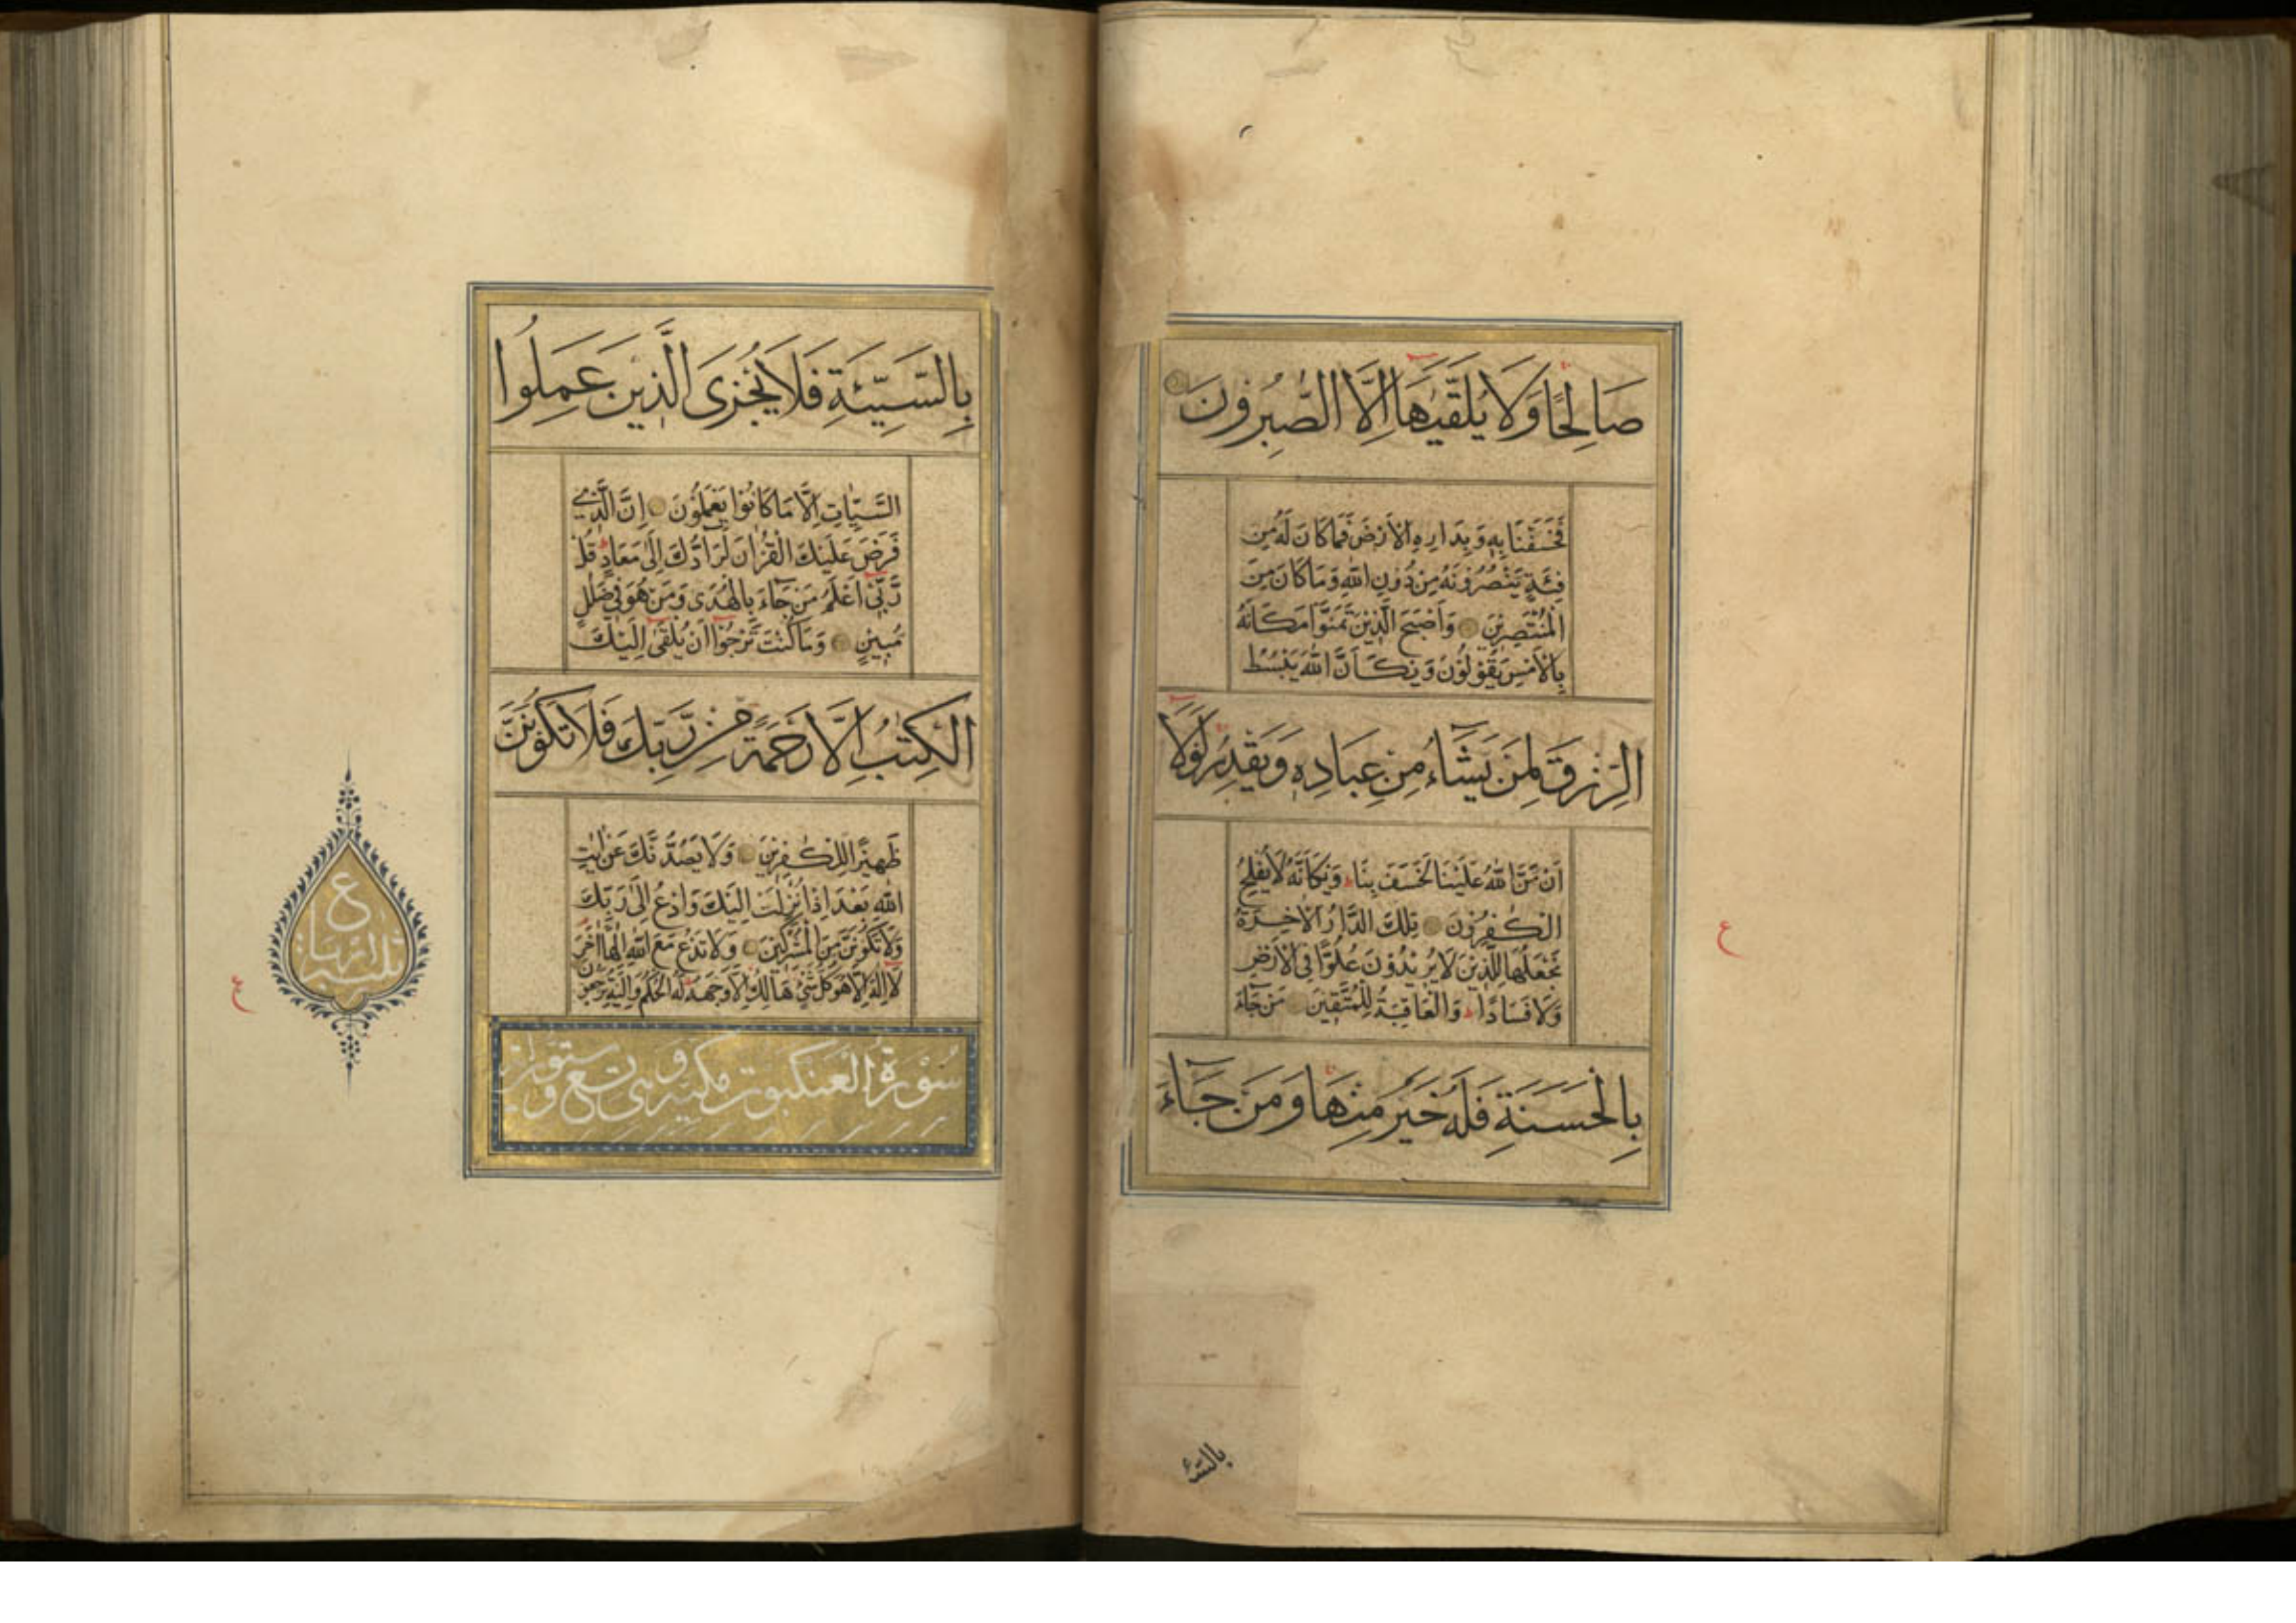 صَالِحًا وَلَا يُلَقّٰيهَا اِلَّا الصّٰبِرُونَ
فَخَسَفْنَا بِهٖ وَبِدَارِهِ الْاَرْضَ فَمَا كَانَ لَهُ مِنْ
فِئَةٍ يَنْصُرُونَهُ مِنْ دُونِ اللّٰهِ وَمَا كَانَ مِنَ
الْمُنْتَصِرِينَ وَاَصْبَحَ الَّذِينَ تَمَنَّوْا مَكَانَهُ
بِالْاَمْسِ يَقُولُونَ وَيْكَاَنَّ اللّٰهَ يَبْسُطُ
الرِّزْقَ لِمَنْ يَشَآءُ مِنْ عِبَادِهٖ وَيَقْدِرُ لَوْلَآ
اَنْ مَنَّ اللّٰهُ عَلَيْنَا لَخَسَفَ بِنَا وَيْكَاَنَّهُ لَا يُفْلِحُ
الْكٰفِرُونَ تِلْكَ الدَّارُ الْاٰخِرَةُ
نَجْعَلُهَا لِلَّذِينَ لَا يُرِيْدُوْنَ عُلُوًّا فِى الْاَرْضِ
وَلَا فَسَادًا وَالْعَاقِبَةُ لِلْمُتَّقِينَ مَنْ جَآءَ
بِالْحَسَنَةِ فَلَهُ خَيْرٌ مِنْهَا وَمَنْ جَآءَ
ع
بالسئ
بِالسَّيِّئَةِ فَلَا يُجْزَى الَّذِينَ عَمِلُوا
السَّيِّاٰتِ اِلَّا مَا كَانُوْا يَعْمَلُوْنَ اِنَّ الَّذِى
فَرَضَ عَلَيْكَ الْقُرْاٰنَ لَرَآدُّكَ اِلٰى مَعَادٍ قُلْ
رَّبِّىٓ اَعْلَمُ مَنْ جَآءَ بِالْهُدٰى وَمَنْ هُوَ فِى ضَلٰلٍ
مُبِينٍ وَمَا كُنْتَ تَرْجُوْٓا اَنْ يُلْقٰىٓ اِلَيْكَ
الْكِتٰبُ اِلَّا رَحْمَةً مِنْ رَّبِّكَ فَلَا تَكُوْنَنَّ
ظَهِيْرًا لِلْكٰفِرِيْنَ وَلَا يَصُدُّنَّكَ عَنْ اٰيٰتِ
اللّٰهِ بَعْدَ اِذْ اُنْزِلَتْ اِلَيْكَ وَادْعُ اِلٰى رَبِّكَ
وَلَا تَكُوْنَنَّ مِنَ الْمُشْرِكِيْنَ وَلَا تَدْعُ مَعَ اللّٰهِ اِلٰهًا اٰخَرَ
لَآ اِلٰهَ اِلَّا هُوَ كُلُّ شَىْءٍ هَالِكٌ اِلَّا وَجْهَهُ لَهُ الْحُكْمُ وَاِلَيْهِ تُرْجَعُوْنَ
سُوْرَةُ الْعَنْكَبُوتِ مكية وهى تسع وستون
ع
ع